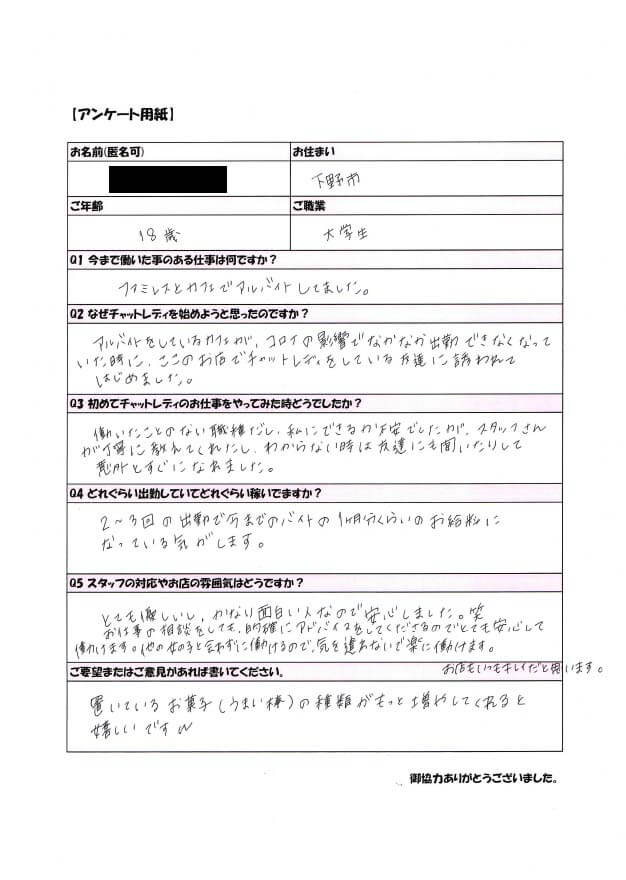 【アンケート用紙】
お名前(匿名可) お住まい
下野市
ご年齢 ご職業
18歳 大学生
Q1 今まで働いた事のある仕事は何ですか？
ファミレスとカフェでアルバイトしてました。
Q2 なぜチャットレディを始めようと思ったのですか？
アルバイトをしているカフェが、コロナの影響でなかなか出勤できなくなって
いた時に、ここのお店でチャットレディをしている友達に誘われて
はじめました。
Q3 初めてチャットレディのお仕事をやってみた時どうでしたか？
働いたことのない職種だし、私にできるか不安でしたが、スタッフさん
が丁寧に教えてくれたし、わからない時は友達にも聞いたりして
意外とすぐになれました。
Q4 どれぐらい出勤していてどれぐらい稼いでますか？
2～3回の出勤で今までのバイトの1ヶ月分くらいのお給料に
なっている気がします。
Q5 スタッフの対応やお店の雰囲気はどうですか？
とても優しいし、かなり面白い人なので安心しました。笑
お仕事の相談をしても、的確にアドバイスをしてくださるのでとても安心して
働けます。他の女の子と会わずに働けるので、気を遣わないで楽に働けます。
お店もいつもキレイだと思います。
ご要望またはご意見があれば書いてください。
置いているお菓子(うまい棒)の種類がもっと増やしてくれると
嬉しいですw
御協力ありがとうございました。